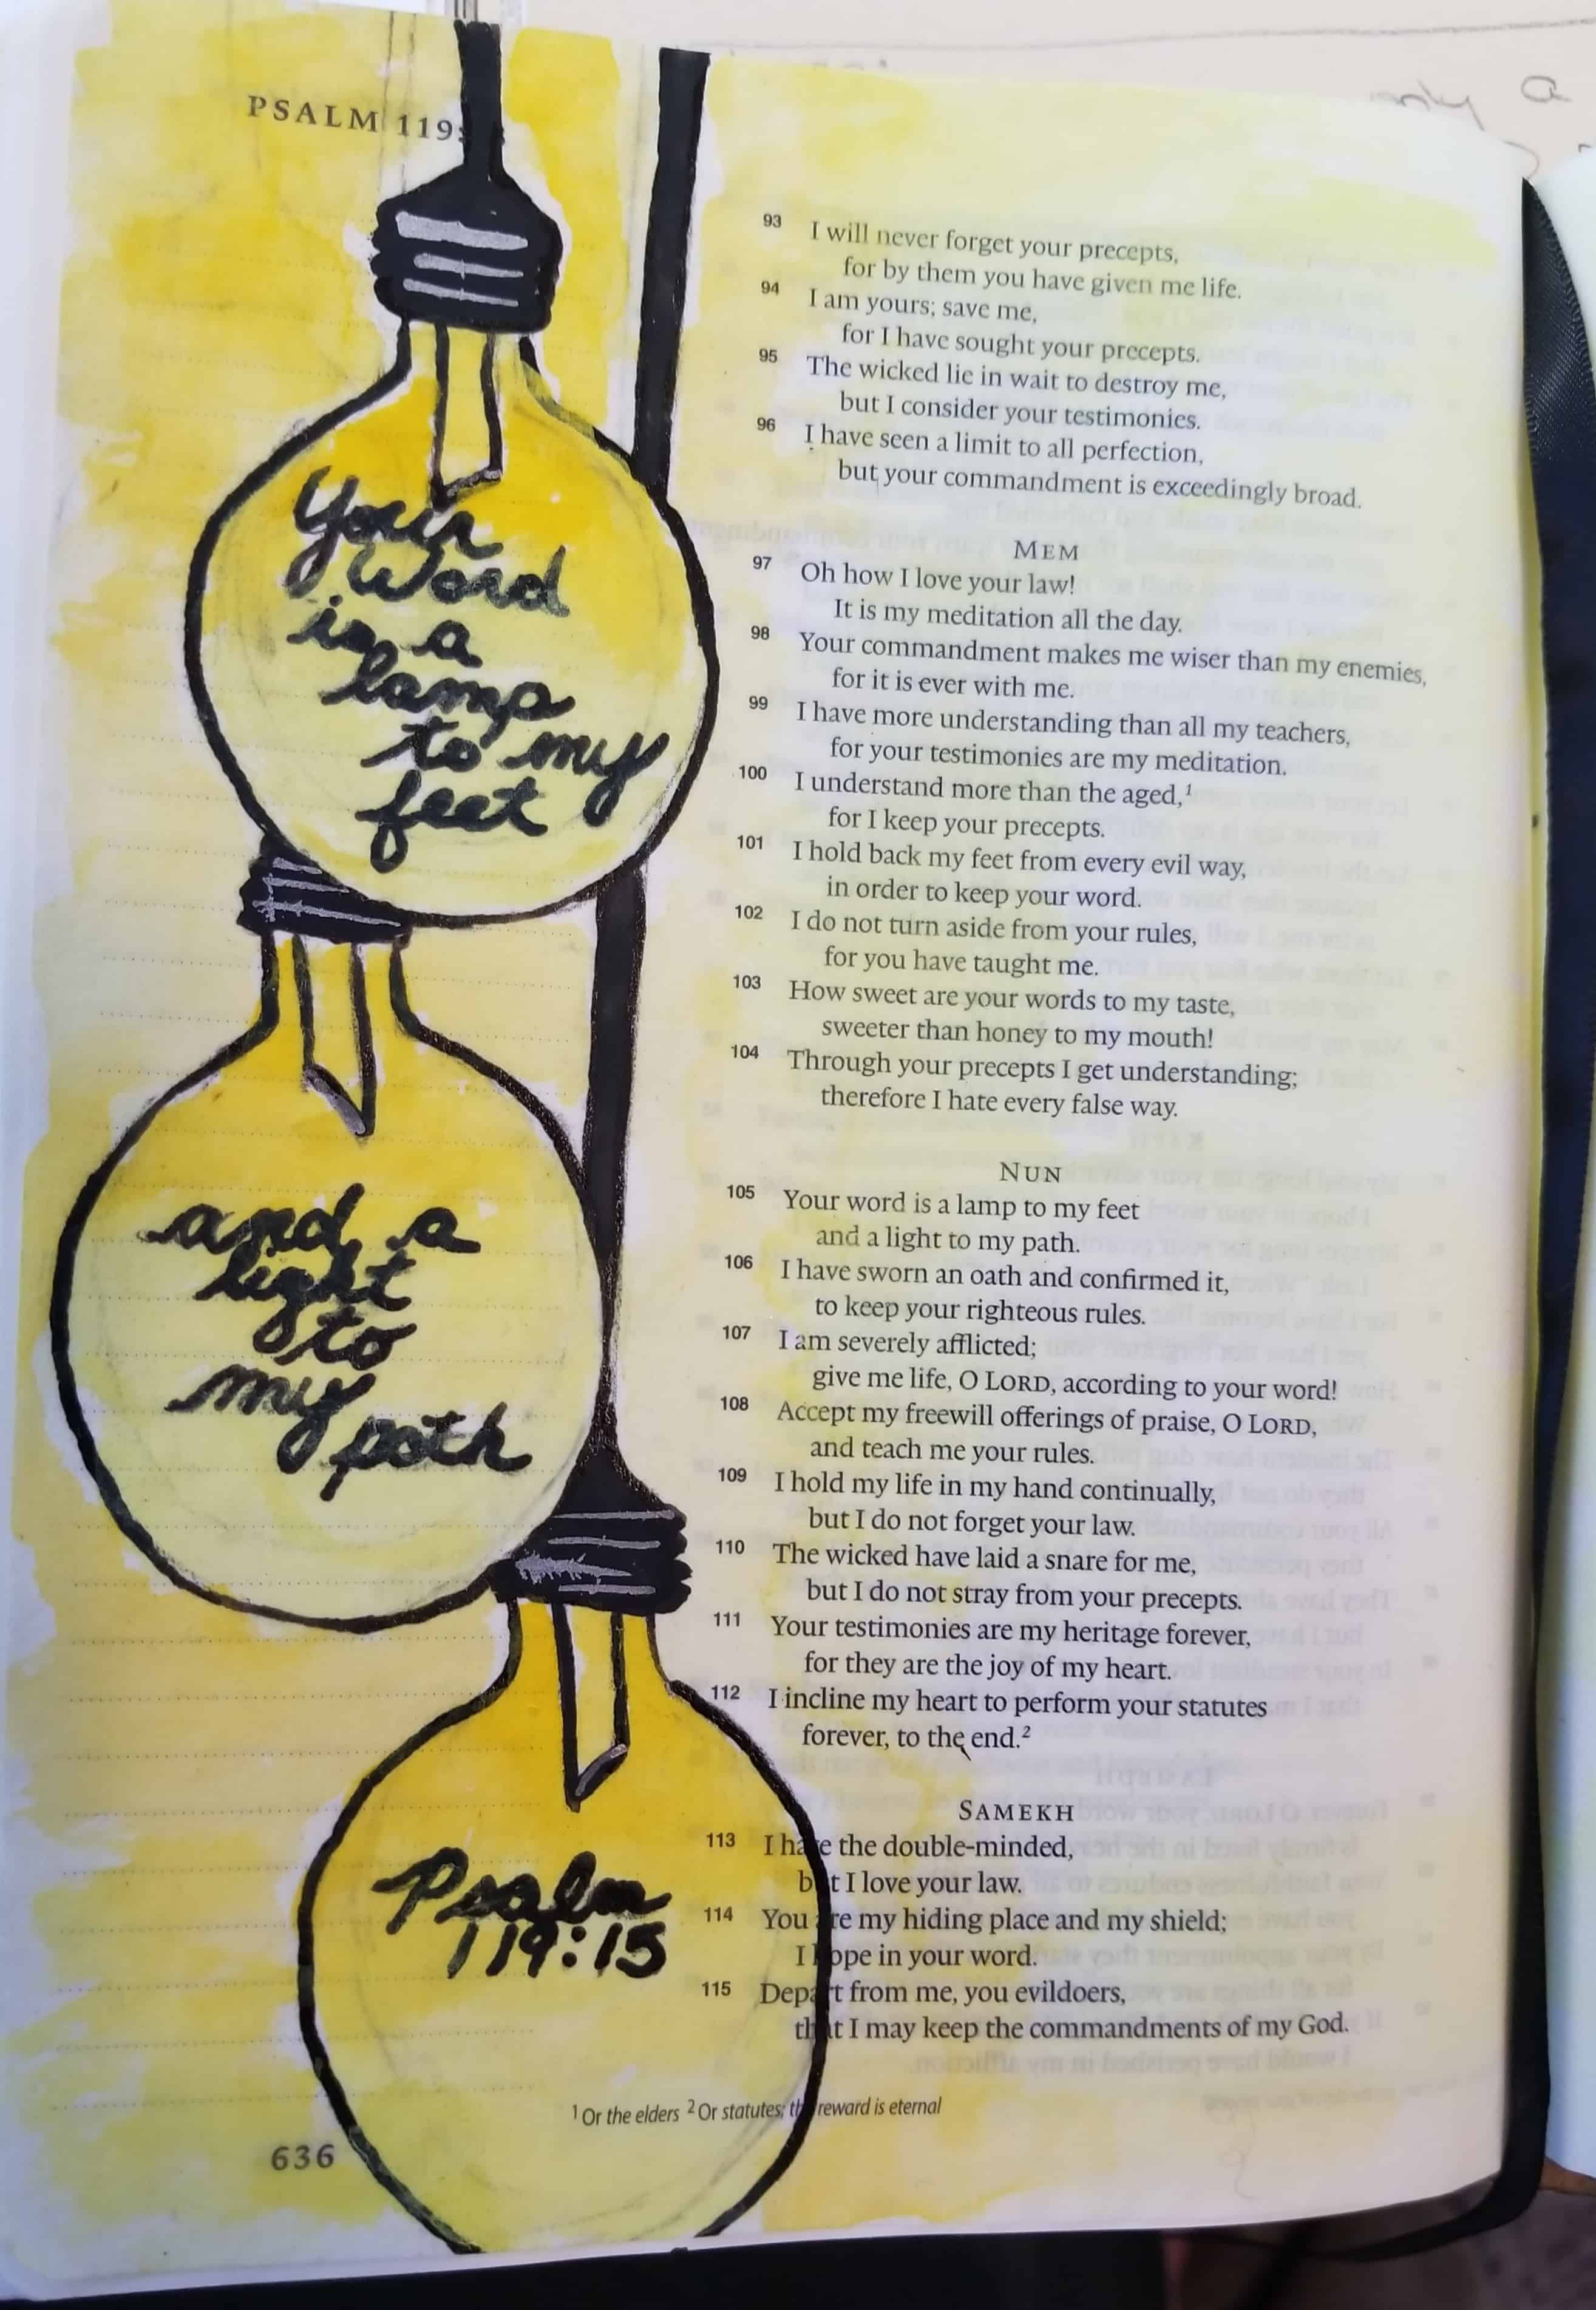 PSALM 119:
Your
Word
is a
lamp
to my
feet
and a
light
to
my
path
Psalm
119:15
93 I will never forget your precepts,
for by them you have given me life.
94 I am yours; save me,
for I have sought your precepts.
95 The wicked lie in wait to destroy me,
but I consider your testimonies.
96 I have seen a limit to all perfection,
but your commandment is exceedingly broad.
MEM
97 Oh how I love your law!
It is my meditation all the day.
98 Your commandment makes me wiser than my enemies,
for it is ever with me.
99 I have more understanding than all my teachers,
for your testimonies are my meditation.
100 I understand more than the aged,¹
for I keep your precepts.
101 I hold back my feet from every evil way,
in order to keep your word.
102 I do not turn aside from your rules,
for you have taught me.
103 How sweet are your words to my taste,
sweeter than honey to my mouth!
104 Through your precepts I get understanding;
therefore I hate every false way.
NUN
105 Your word is a lamp to my feet
and a light to my path.
106 I have sworn an oath and confirmed it,
to keep your righteous rules.
107 I am severely afflicted;
give me life, O LORD, according to your word!
108 Accept my freewill offerings of praise, O LORD,
and teach me your rules.
109 I hold my life in my hand continually,
but I do not forget your law.
110 The wicked have laid a snare for me,
but I do not stray from your precepts.
111 Your testimonies are my heritage forever,
for they are the joy of my heart.
112 I incline my heart to perform your statutes
forever, to the end.²
SAMEKH
113 I hate the double-minded,
but I love your law.
114 You are my hiding place and my shield;
I hope in your word.
115 Depart from me, you evildoers,
that I may keep the commandments of my God.
¹ Or the elders ² Or statutes; the reward is eternal
636